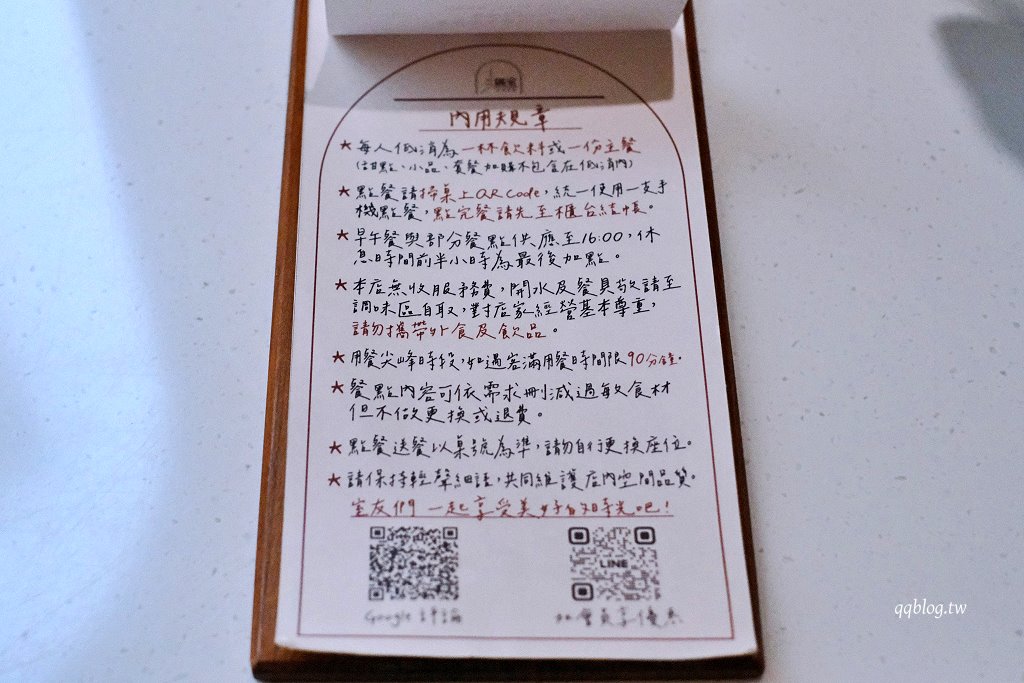 內用規章
★每人低消為一杯飲料或一份主餐
(甜點、小品、套餐加購不包含在低消內)
★點餐請掃桌上QR Code,統一使用一支手
機點餐,點完餐請先至櫃台結帳。
★早午餐與部分餐點供應至16:00,休
息時間前半小時為最後加點。
★本店無收服務費,開水及餐具敬請至
調味區自取,對店家經營基本尊重,
請勿攜帶外食及飲品。
★用餐尖峰時段,如遇客滿用餐時間限90分鐘。
★餐點內容可依需求刪減過敏食材
但不做更換或退費。
★點餐送餐以桌號為準,請勿自行更換座位。
★請保持輕聲細語,共同維護店內空間品質。
室友們 一起享受美好的時光吧!
LINE
Google 評論
加會員享優惠
qqblog.tw